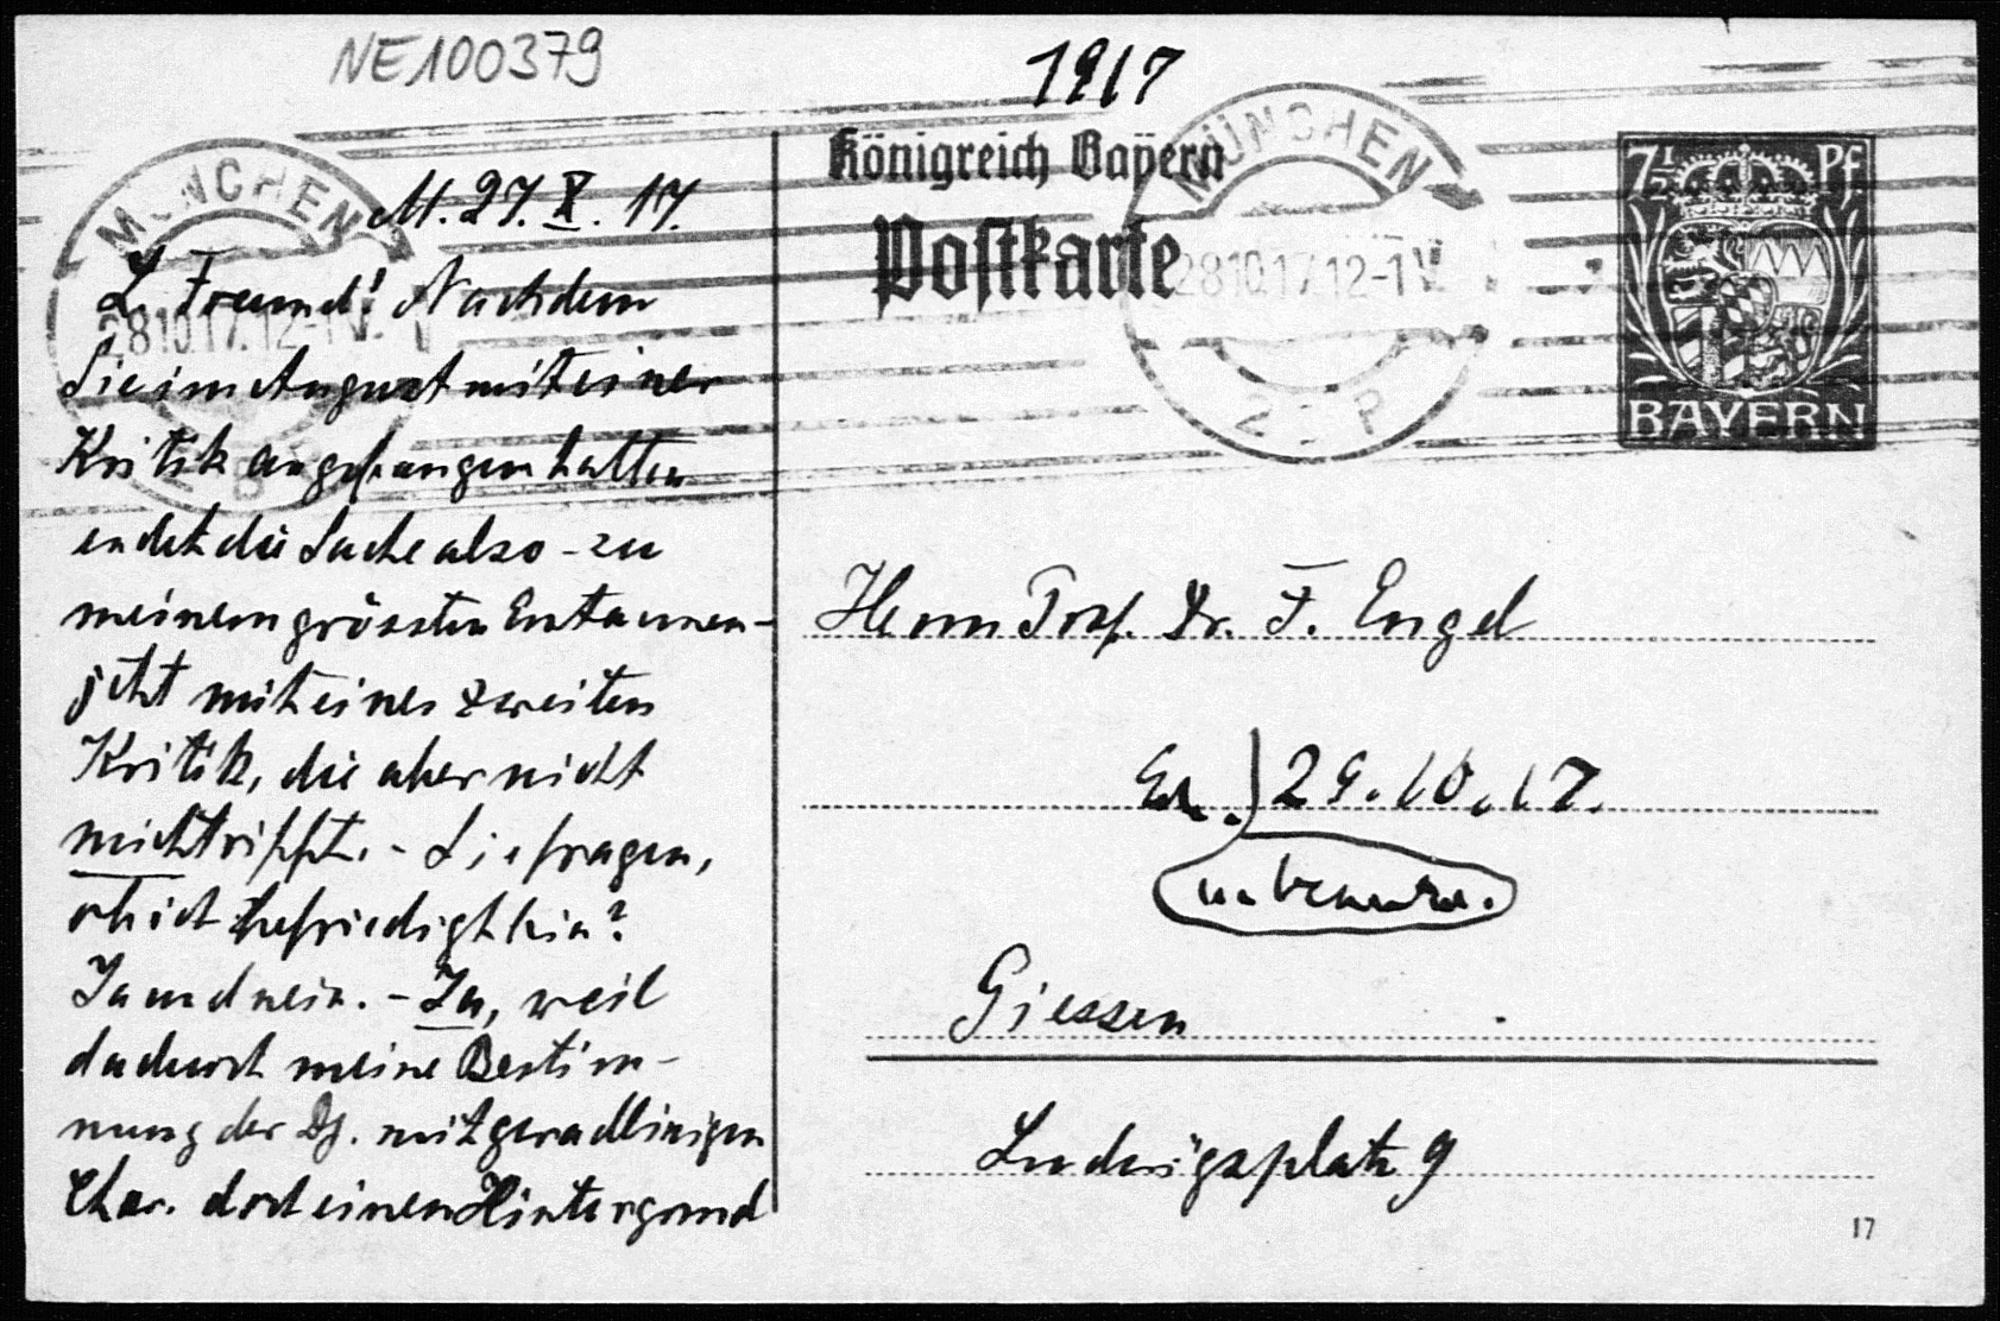 NE100379
1917
MÜNCHEN
28 10 17. 12-1 V.
M. 27. X. 17.
L. Freund! Nachdem
Sie im August mit einer
Kritik angefangen hatten
endet die Sache also - zu
meinem grössten Erstaunen -
jetzt mit einer zweiten
Kritik, die aber nicht
mich trifft. - Sie fragen,
ob ich befriedigt bin?
Ja und nein. - Ja, weil
dadurch meine Bestim-
mung der Dg. mit geradlinigen
Char. doch einen Hintergrund
Königreich Bayern
Postkarte
MÜNCHEN
28 10 17. 12-1 V.
2 B P
7½ Pf
BAYERN
Herrn Prof. Dr. F. Engel
29.10.17.
Giessen
Ludwigsplatz 9
17